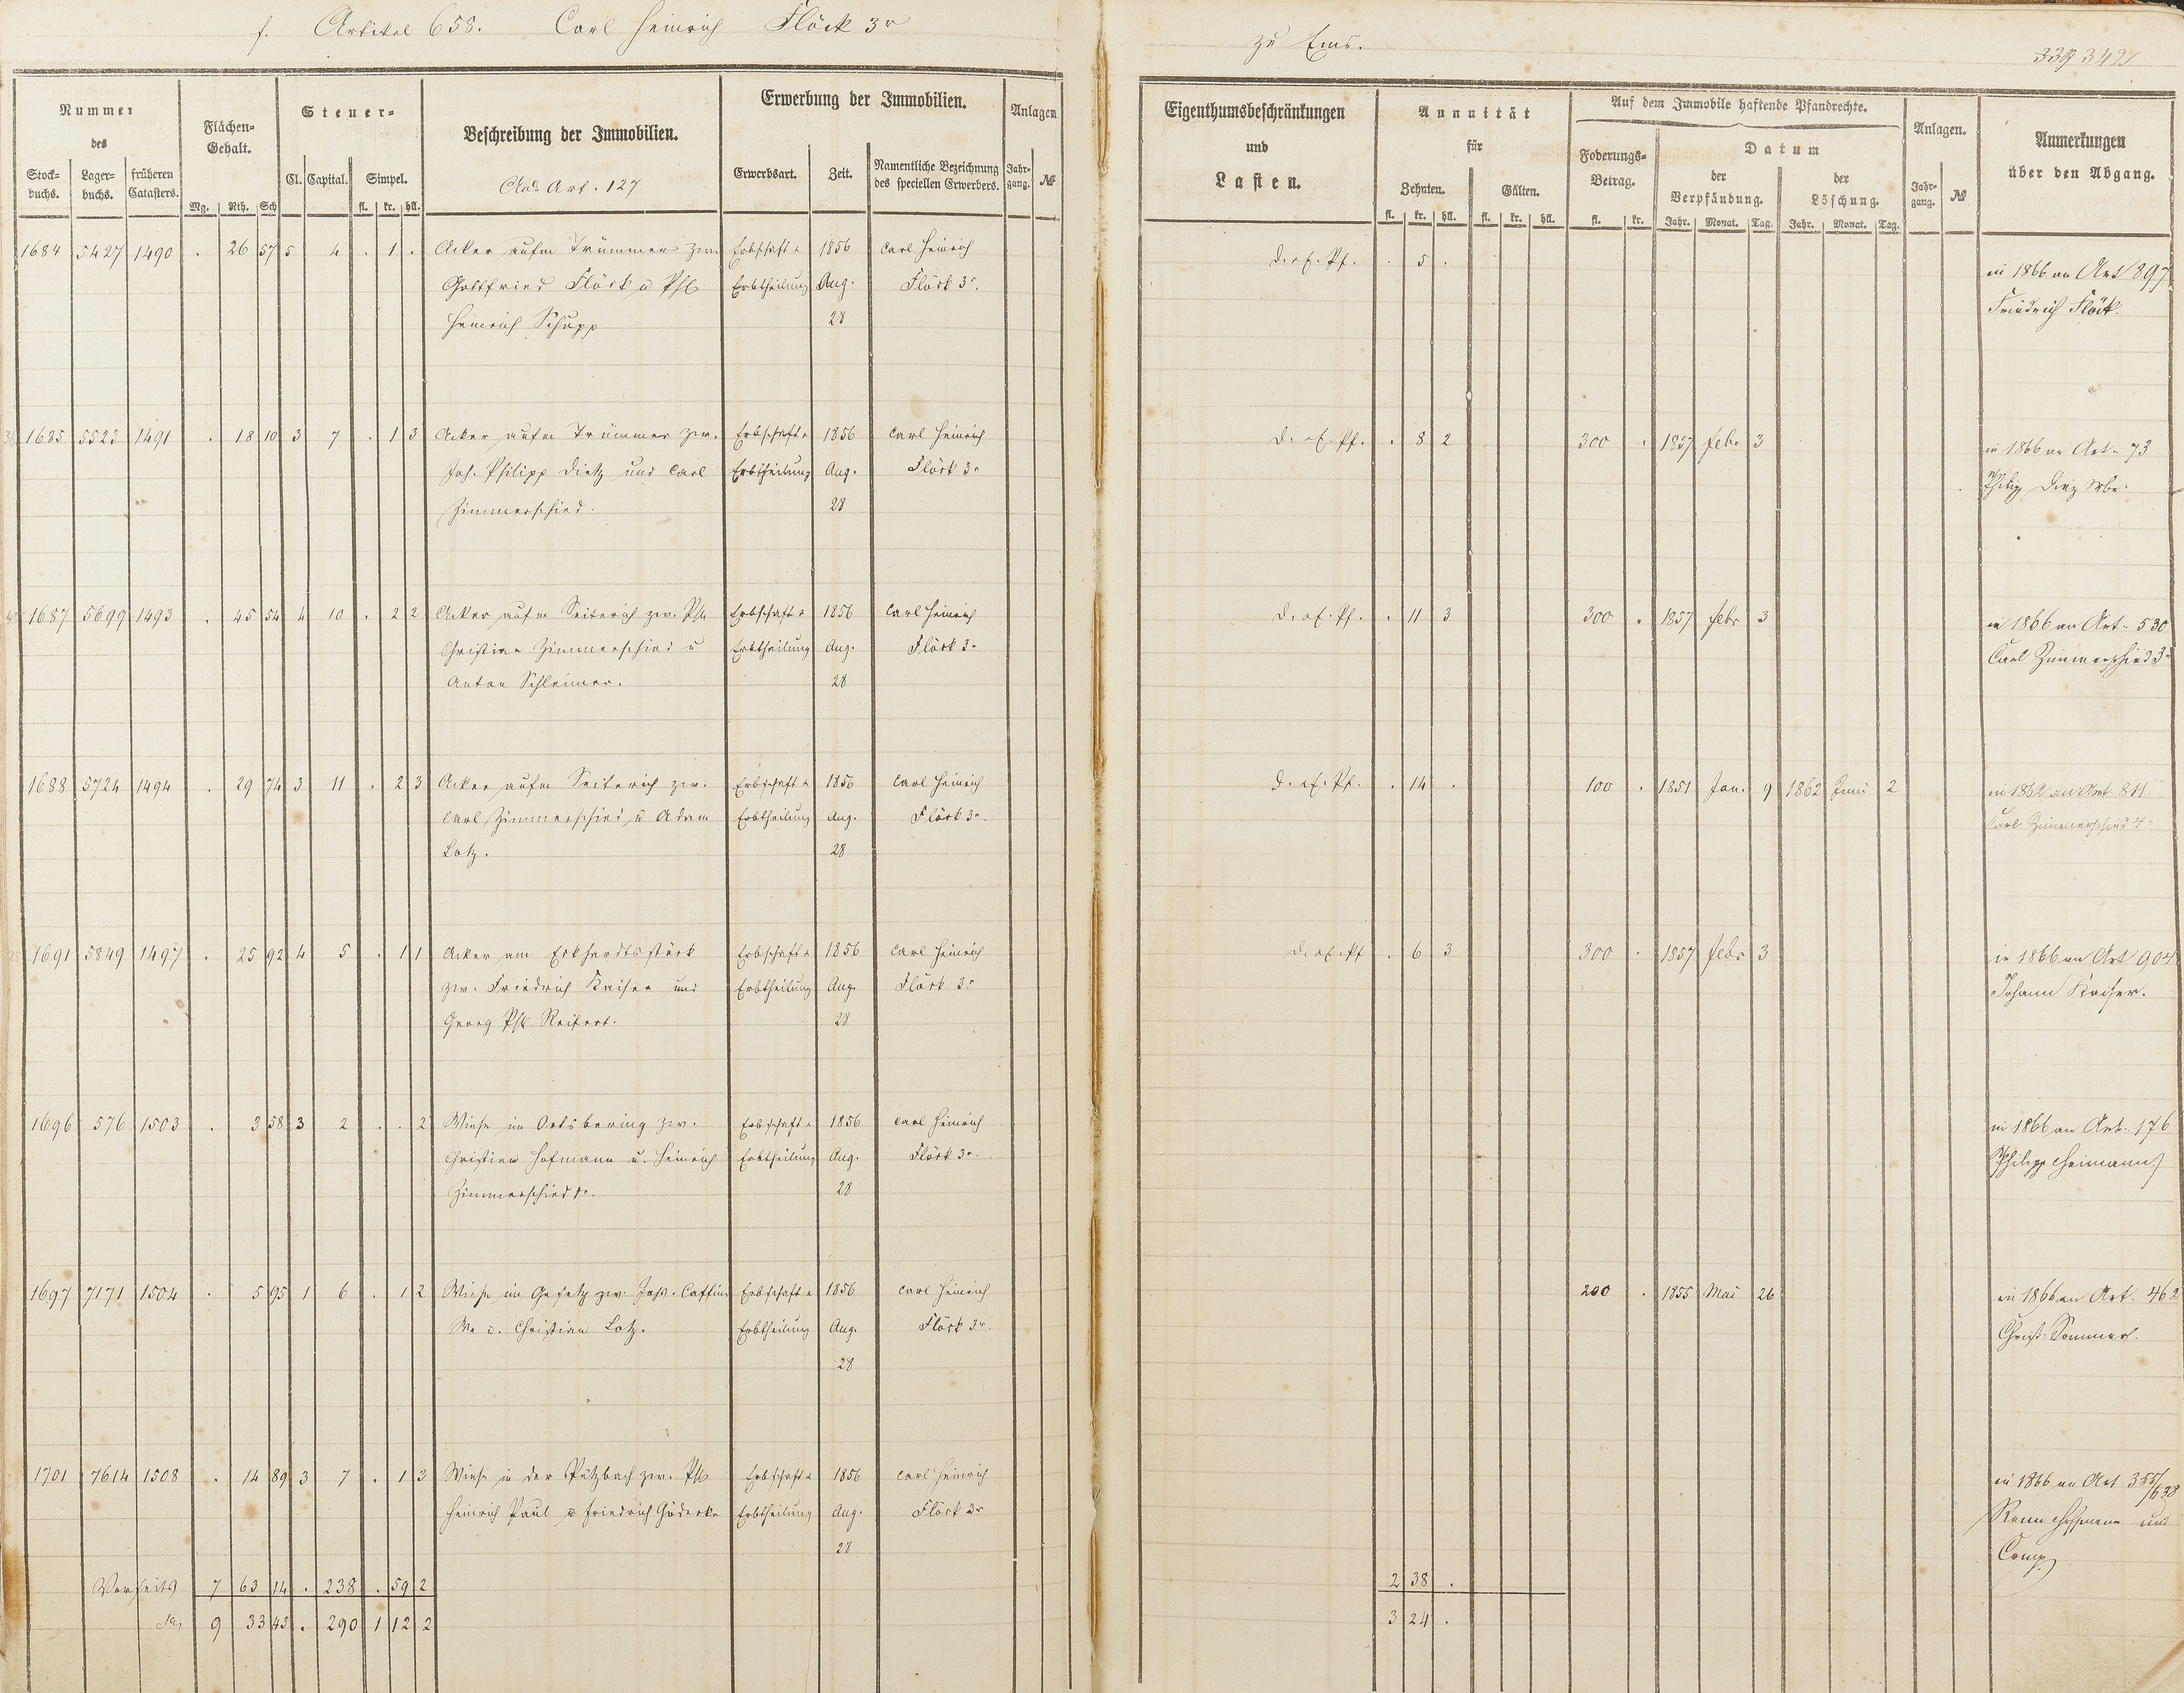 f. Artikel 658. Carl Heinrich Flöck 3r
zu Ems.
339 342
Nummer des
Stockbuchs. Lagerbuchs. früheren Catasters.
Flächen-Gehalt.
Mg. Rth. Sch
Steuer-
Cl. Capital. Simpel.
fl. kr. hll.
Beschreibung der Immobilien.
Art. 127
Erwerbung der Immobilien.
Erwerbsart. Zeit. Namentliche Bezeichnung des speciellen Erwerbers.
Anlagen
Jahrgang. №
Eigenthumsbeschränkungen
und
Lasten.
Annuität
für
Zehnten. Gülten.
fl. kr. hll. fl. kr. hll.
Auf dem Immobile haftende Pfandrechte.
Foderungs-Betrag.
fl. kr.
Datum
der Verpfändung. der Löschung.
Jahr. Monat. Tag. Jahr. Monat. Tag.
Anlagen.
Jahrgang. №
Anmerkungen
über den Abgang.
1684 5427 1490 . 26 57 5 4 . 1 . Acker aufm Trümmer zw. Erbschaft u 1856 Carl Heinrich d. z. E. Pf. . 5 . in 1866 an Art 897
Gottfried Flöck u Phl Erbtheilung Aug. Flöck 3r. Friedrich Flöck.
Heinrich Schupp 28
1685 5523 1491 . 18 10 3 7 . 1 3 Acker aufm Trümmer zw. Erbschaft u 1856 Carl Heinrich d. z. E. Pf. . 8 2 300 . 1857 Febr 3 in 1866 an Art. 73
Joh. Philipp Dietz und Carl Erbtheilung Aug. Flöck 3r Philipp Dietz Wbe.
Zimmerschied. 28
1687 5699 1493 . 45 54 4 10 . 2 2 Acker aufm Seiterich zw. Phl Erbschaft u 1856 Carl Heinrich d. z. E. Pf. . 11 3 300 . 1857 Febr 3 in 1866 an Art. 530
Christian Zimmerschied u Erbtheilung Aug. Flöck 3r Carl Zimmerschied 3r
Anton Schleimer. 28
1688 5724 1494 . 29 74 3 11 . 2 3 Acker aufm Seiterich zw. Erbschaft u 1856 Carl Heinrich d. z. E. Pf. . 14 . 100 . 1851 Jan. 9 1862 Juni 2 in 1862 an Art 811
Carl Zimmerschied u Adam Erbtheilung Aug. Flöck 3r. Carl Zimmerschied 4r
Lotz. 28
1691 5849 1497 . 25 92 4 5 . 1 1 Acker am Eckhardtsstück Erbschaft u 1856 Carl Heinrich d. z. E. Pf . 6 3 300 . 1857 Febr 3 in 1866 an Art 904
zw. Friedrich Kaiser und Erbtheilung Aug. Flöck 3r Johann Kaiser.
Georg Phl Reifert. 28
1696 576 1503 . 3 58 3 2 . . 2 Wiese im Ortsbering zw. Erbschaft u 1856 Carl Heinrich in 1866 an Art. 176
Christian Hofmann u. Heinrich Erbtheilung Aug. Flöck 3r. Philipp Heimann
Zimmerschied 1r. 28
1697 7171 1504 . 5 95 1 6 . 1 2 Wiese im Gesetz zw. Joh. Erbschaft u 1856 Carl Heinrich 200 . 1855 Mai 26 in 1866 an Art. 462
We u. Christian Lotz. Erbtheilung Aug. Flöck 3r. Christ. Sommer.
28
1701 7614 1508 . 14 89 3 7 . 1 3 Wiese in der Pützbach zw. Phl Erbschaft u 1856 Carl Heinrich in 1866 an Art 355/638
Heinrich Paul u Friedrich Gödecke Erbtheilung Aug. Flöck 3r Hofmann und
28 Comp
Vorseits 7 63 14 . 238 . 59 2 2 38 .
9 33 43 . 290 1 12 2 3 24 .